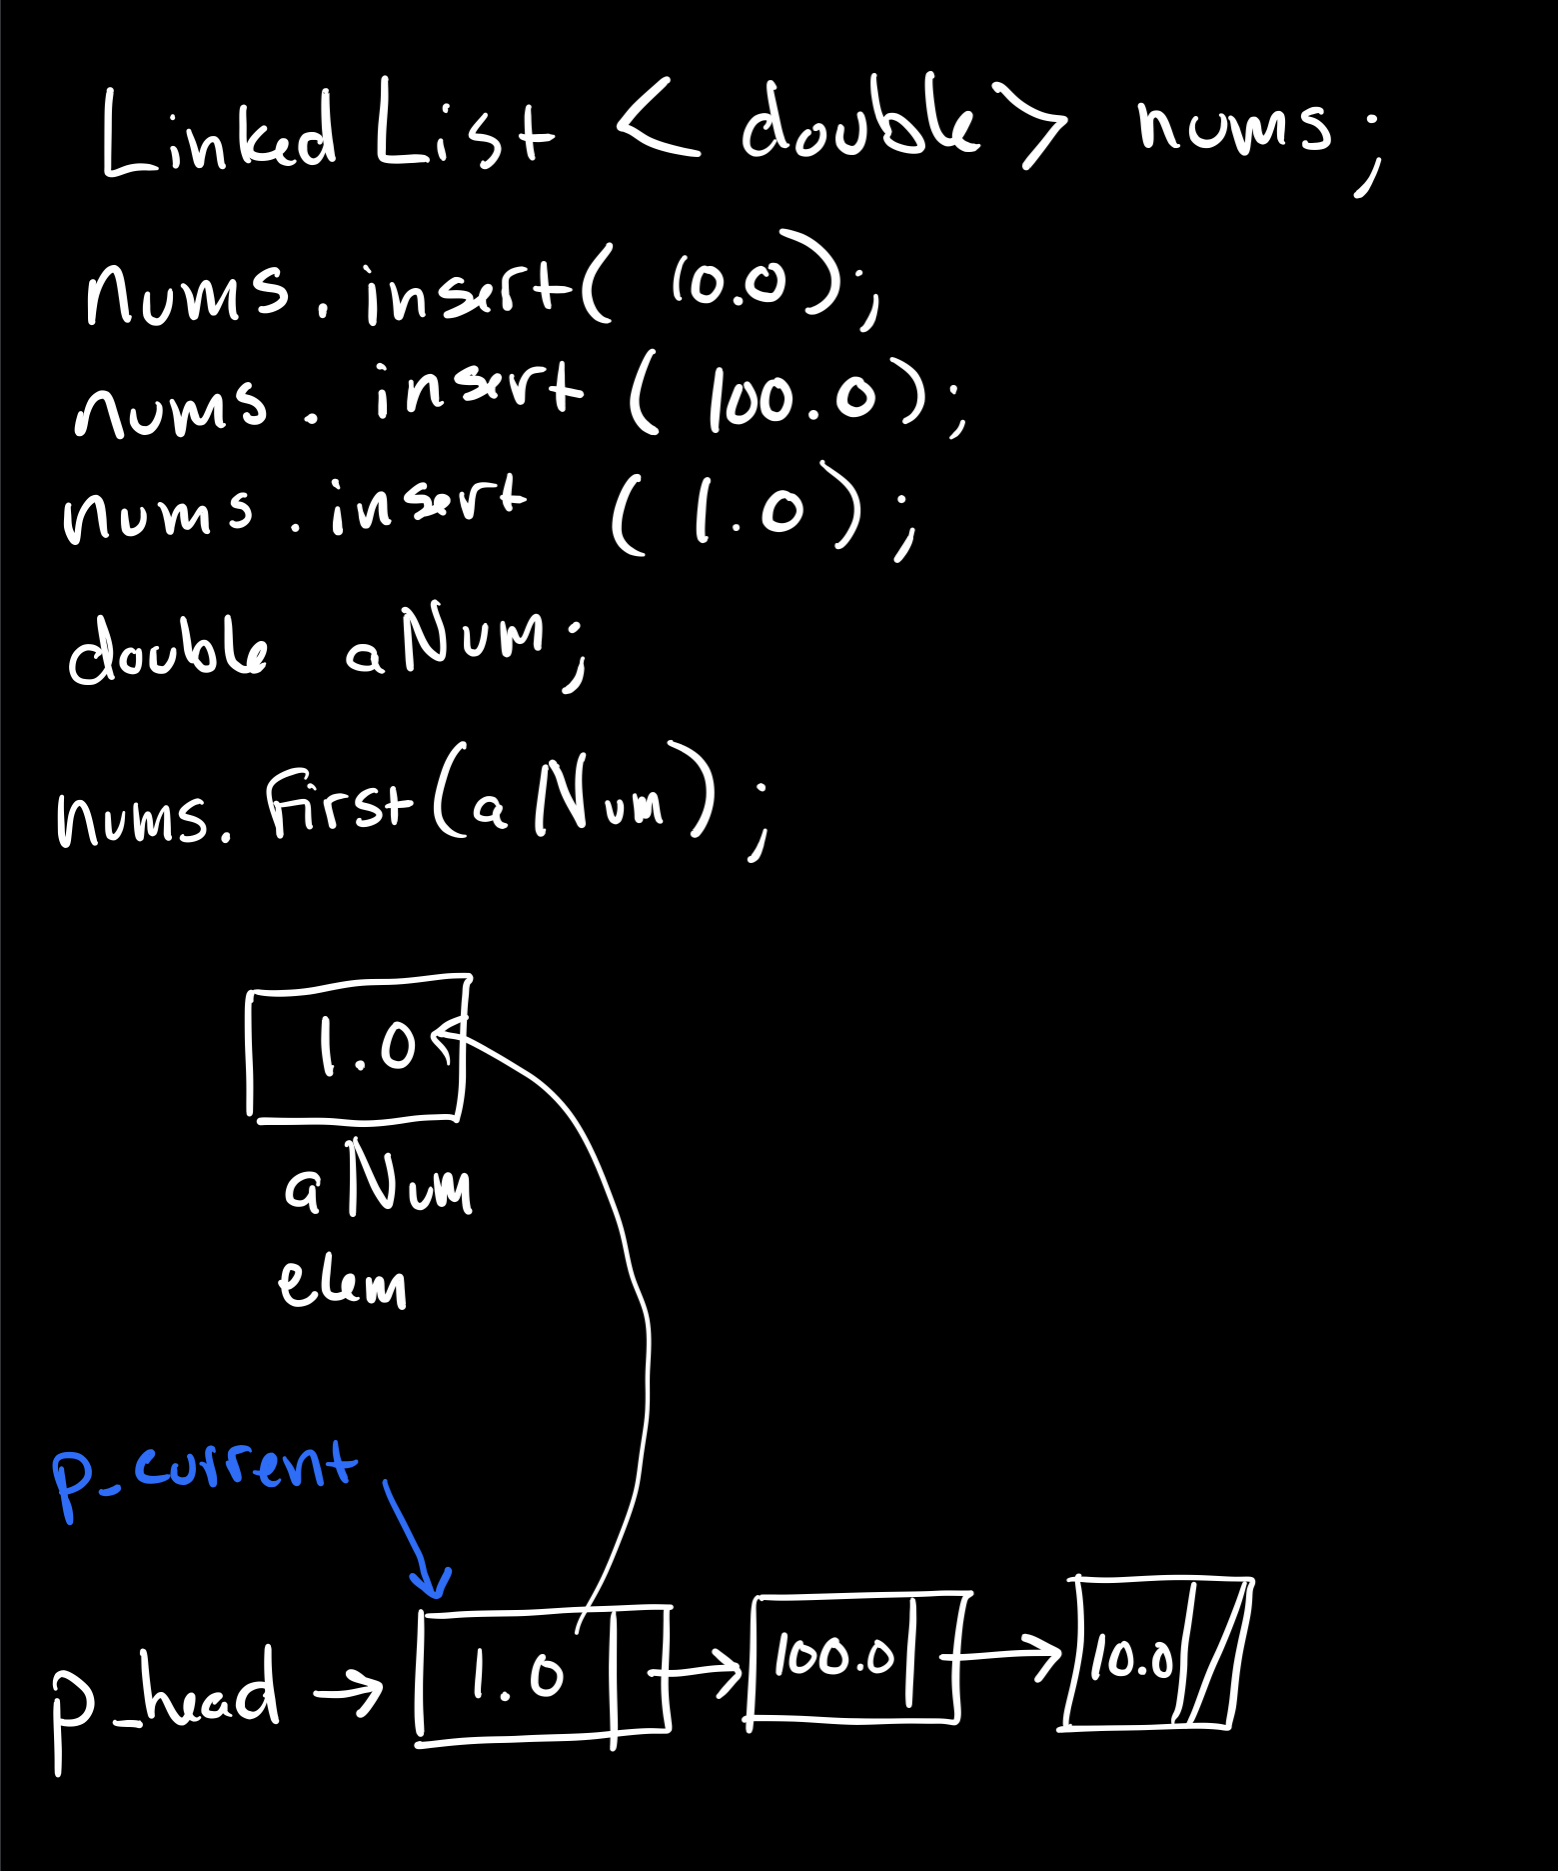 Linked List < double > nums;
nums.insert( 10.0);
nums. insert ( 100.0);
nums. insert ( 1.0);
double aNum;
nums. first(aNum);
1.0
aNum
elem
p_current
p_head → 1.0 → 100.0 → 10.0